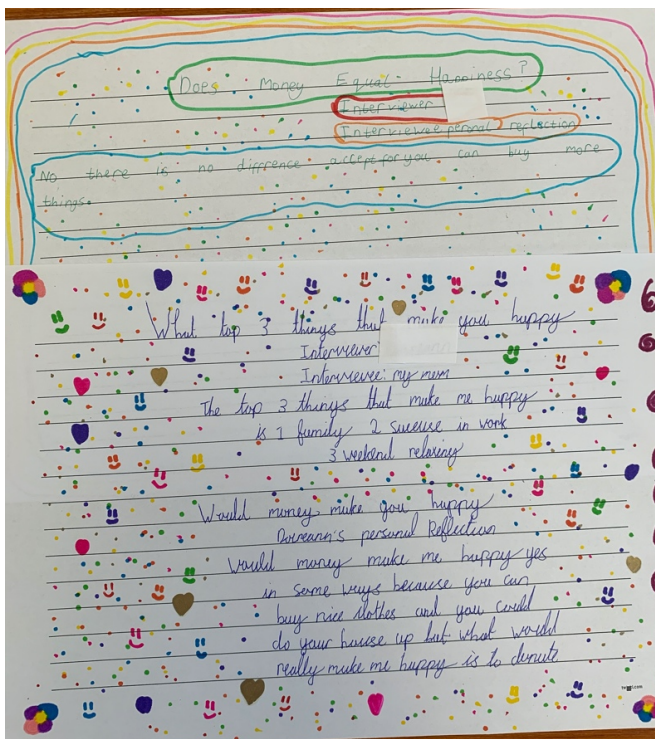 Does Money Equal Happiness?
Interviewer
Interviewee personal reflection
No there is no diffrence accept for you can buy more
things.
What top 3 things that make you happy
Interviewer:
Interviewee: my mum
The top 3 things that make me happy
is 1 family 2 sucsuse in work
3 weekend relaxing
Would money make you happy
Doireann's personal Reflection
Would money make me happy yes
in some ways because you can
buy nice clothes and you could
do your house up but what would
really make me happy is to donate